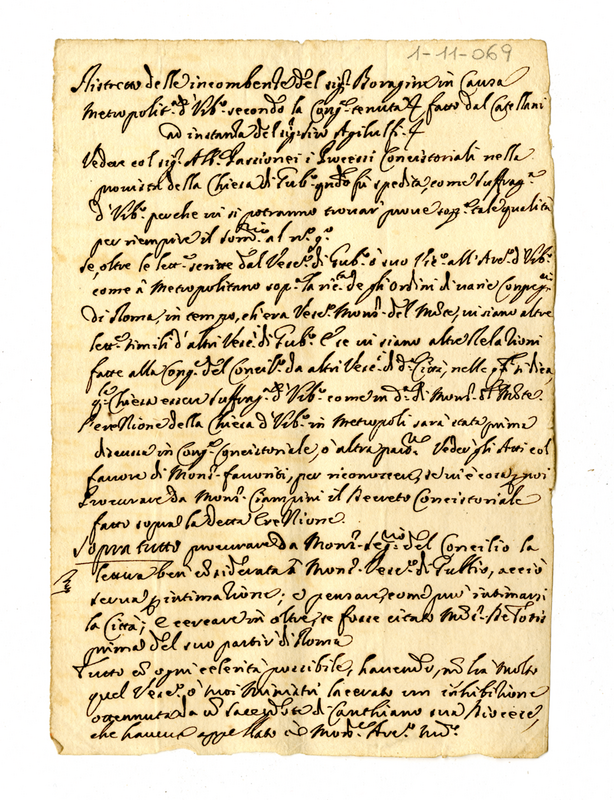 1-11-069
Ristretto delle incombenze del sigr Boragini in Causa
Metropolit.a d'Urb.o secondo la Cong.e tenuta fatto dal Catellani
ad instanza del sig.r
Vedere col sig.r Ab. Passionei i Processi Concistoriali nella
provista della Chiesa di Gub.o qndo fù spedita, come suffrag.a
d'Urb.o perche ivi si potranno trovar prove sop.a tale qualità
per riempire il som.rio al n.o 9.o
Se, oltre le lett.e scritte dal Vesc.o di Gub.o ò suo Vic.o all'Arc.o d'Urb.o
come à Metropolitano sop.a la ric.ta degli Ordini di varie Congreg.ni
di Roma, in tempo, ch'era Vesc.o Mons.r del Mõte, vi siano altre
lett.e simili d'altri Vesc.i di Gub.o E se vi siano altre Relazioni
fatte alla Cong.e del Concil.o da altri Vesc.i di d.a Città, nelle q.li si dica,
q.la Chiesa essere suffrag.a d'Urb.o come in d.a di Mons.r del Mõte.
L'erettione della Chiesa d'Urb.o in Metropoli sarà stata prima
discussa in Cong.e Concistoriale, ò altra Veder gli Atti col
favore di Mons.r Favoriti, per riconoscere, se vi è cosa p noi
Procurare da Mons.r Ciampini il Decreto Concistoriale
fatto sopra la detta Erettione.
Sopra tutto procurare da Mons.r Seg.rio del Concilio la
lettera ben cõsiderata à Mons.r Vesc.o di Gubbio, acciò
serva p intimazione; e pensare, come può intimarsi
la Città; e cercare in oltre, se fosse citato Mõs.r De Totis
prima del suo partir di Roma
Tutto cõ ogni celerità possibile, havendo, nõ hà molto
quel Vesc.o ò suoi Ministri lacerato un inhibitione
ottennuta da un Sacerdote di Canthiano sua Diocese,
che haveva appellato à Mons.r Arc.o